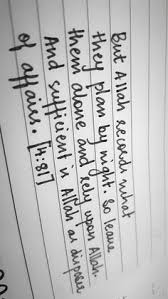 But Allah records what
they plan by night. So leave
them alone and rely upon Allah.
And sufficient is Allah as disposer
of affairs. [4:81]